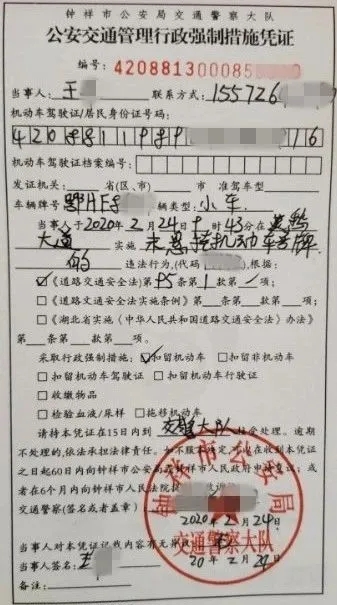 钟祥市公安局交通警察大队
公安交通管理行政强制措施凭证
编号：420881300085
当事人：王 联系方式：155726
机动车驾驶证/居民身份证号码：
420881198 16
机动车驾驶证档案编号：
发证机关： 省(区、市) 市 准驾车型
车辆牌号 鄂H 辆类型：小车
当事人于2020年2月24日9时43分在
大道 实施 未悬挂机动车号牌
的 违法行为,(代码 ),根据：
☑《道路交通安全法》第95条第1款第/项；
□《道路交通安全法实施条例》第__条第__款第__项；
□《湖北省实施〈中华人民共和国道路交通安全法〉办法》
第__条第__款第__项。
采取行政强制措施：☑扣留机动车 □扣留非机动车
□扣留机动车驾驶证 □扣留机动车行驶证
□收缴物品
□检验血液/尿样 □拖移机动车
请持本凭证在15日内到 交警大队 接受处理。逾期
不处理的,依法承担法律责任。如不服本决定,可以在收到本凭证
之日起60日内向钟祥市公安局或钟祥市人民政府申请复议；或
者在6个月内向钟祥市人民法院提
交通警察(签名或者盖章)
2020年2月24日
当事人对本凭证记载内容有无异议
当事人签名：王 20年2月24日
备注：
钟祥市公安局
交通警察大队